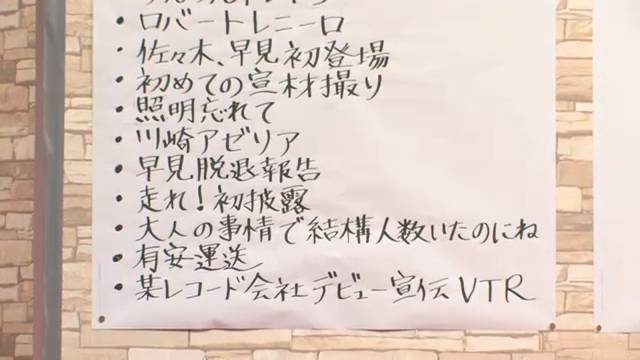 ・ロバートレニーロ
・佐々木、早見初登場
・初めての宣材撮り
・照明忘れて
・川崎アゼリア
・早見脱退報告
・走れ!初披露
・大人の事情で結構人数いたのにね
・有安運送
・某レコード会社デビュー宣伝VTR